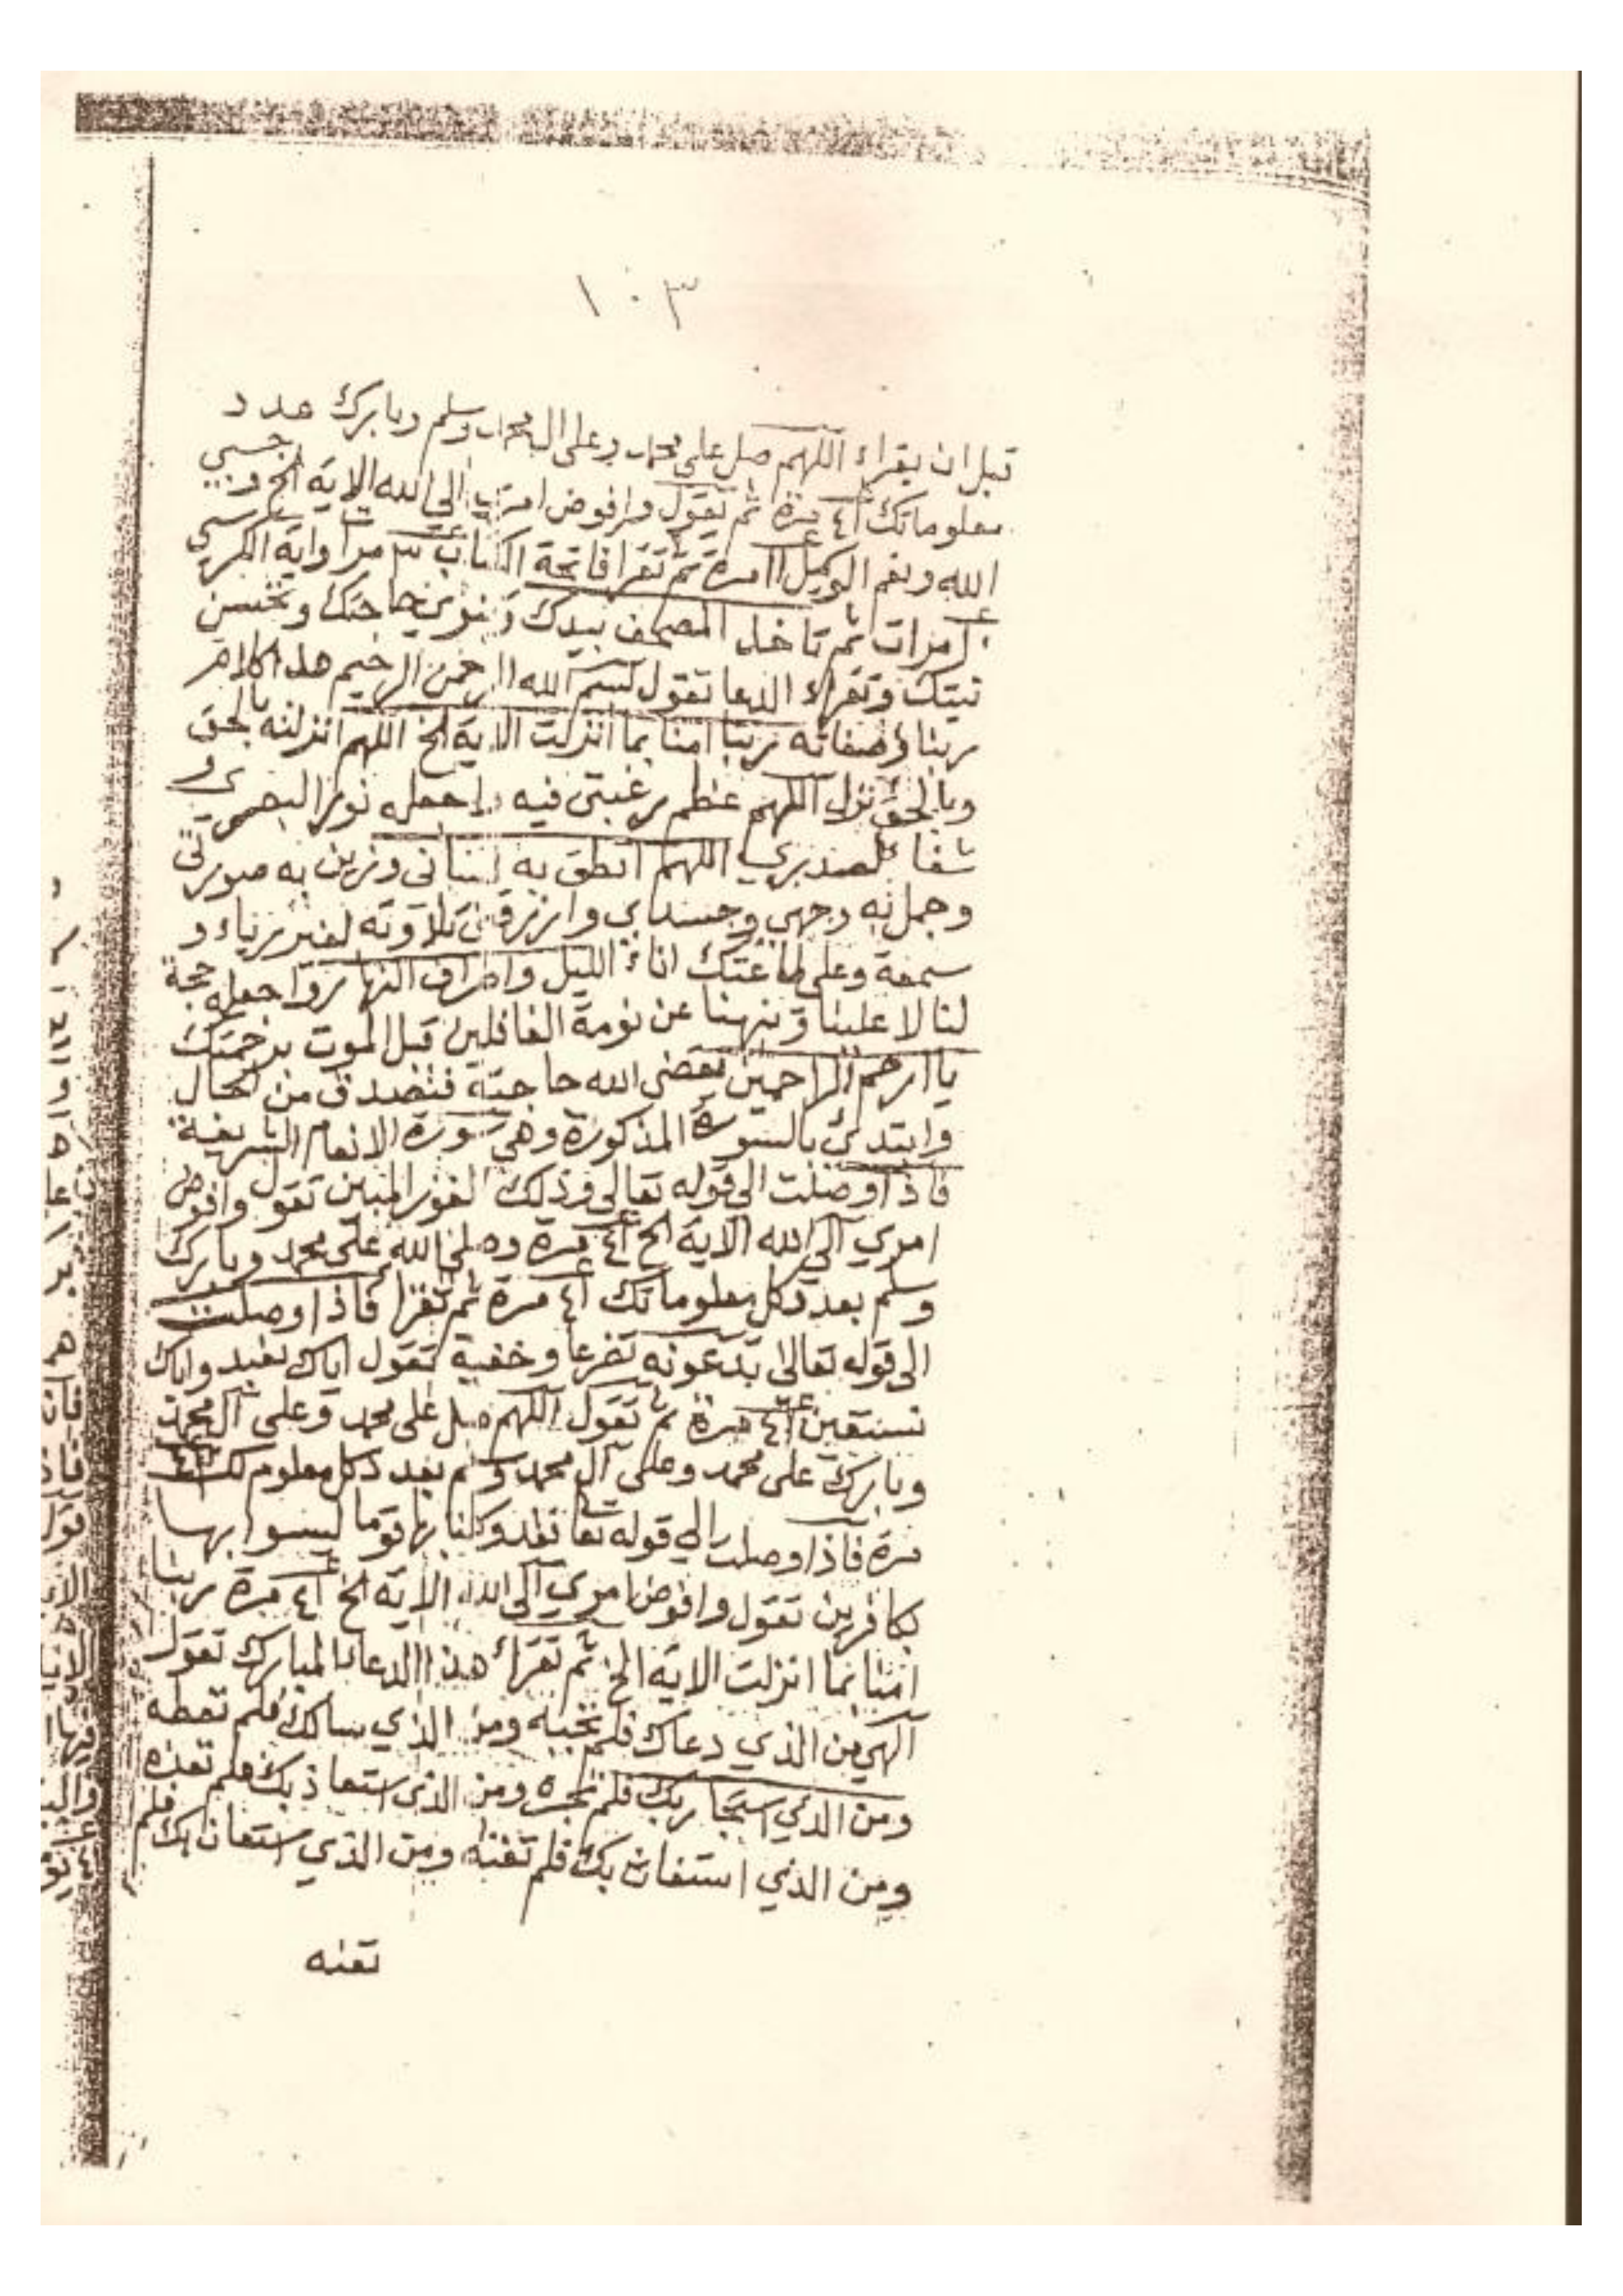 ١٠٣
قبل ان يقراء اللهم صل على محمد وعلى ال محمد وسلم وبارك عدد
معلوماتك ٤١ مرة ثم تقول وافوض امري الى الله الاية الخ وحسبي
الله ونعم الوكيل ١١ مرة ثم تقرا فاتحة الكتاب ٣ مرات واية الكرسي
مرات ثم تاخذ المصحف بيدك وتنوي حاجتك وتحسن
نيتك وتقراء الدعا تقول بسم الله الرحمن الرحيم هذا كلام
ربنا وصفاته ربنا امنا بما انزلت الاية الخ اللهم انزلته بالحق
وبالحق نزل اللهم عظم رغبتي فيه واجعله نورا لبصري و
شفا لصدري اللهم انطق به لساني وزين به صورتي
وجمل به وجهي وجسدي وارزقني تلاوته لغير رياء و
سمعة وعلى طاعتك اناء الليل واطراف النهار واجعله حجة
لنا لا علينا ونبهنا عن نومة الغافلين قبل الموت برحمتك
يا ارحم الراحمين يقضى الله حاجته فتصدق من الحال
وابتدئ بالسورة المذكورة وهي سورة الانعام الشريفة
فاذا وصلت الى قوله تعالى وذلك الفوز المبين تقول وافوض
امري الى الله الاية الخ ٤١ مرة وصلى الله على محمد وبارك
وسلم بعدد كل معلوماتك ٤١ مرة ثم تقرا فاذا وصلت
الى قوله تعالى تدعونه تضرعا وخفية تقول اياك نعبد واياك
نستعين ٤١ مرة ثم تقول اللهم صل على محمد وعلى آل محمد
وبارك على محمد وعلى آل محمد وسلم بعدد كل معلوم لك ٤١
مرة فاذا وصلت الى قوله تعا فقد وكلنا بها قوما ليسوا بها
بكافرين تقول وافوض امري الى الله الاية الخ ٤١ مرة ربنا
امنا بما انزلت الاية الخ ثم تقرأ هذا الدعا المبارك تقول
الهي من الذي دعاك فلم تجبه ومن الذي سالك فلم تعطه
ومن الذي استجار بك فلم تجره ومن الذي استعاذ بك فلم تعذه
ومن الذي استغاث بك فلم تغثه ومن الذي استعان بك فلم
تعنه